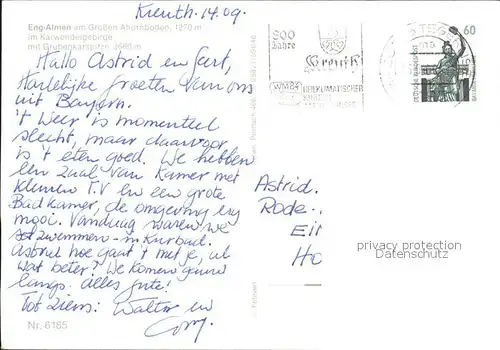 Kreuth 14.09.
Eng-Almen am Großen Ahornboden, 1270 m
im Karwendelgebirge
mit Grubenkarspitze, 2660 m
Hallo Astrid en
Hartelijke groeten van ons
uit Bayern.
't Weer is momenteel
slecht, maar daarvoor
is 't eten goed. We hebben
een zaal van Kamer met
kleuren T.V en een grote
Badkamer, de omgeving erg
mooi. Vandaag waren we
zwemmen in Kurbad.
Astrid hoe gaat 't met je, al
wat beter? We komen gauw
langs. Alles gute!
Tot ziens: Walter en
Corry.
Nr. 6165
900
Jahre
Kreuth
HEILKLIMATISCHER
KURORT
60
DEUTSCHE BUNDESPOST
Astrid.
Rode
Ei
Ho
privacy protection
Datenschutz